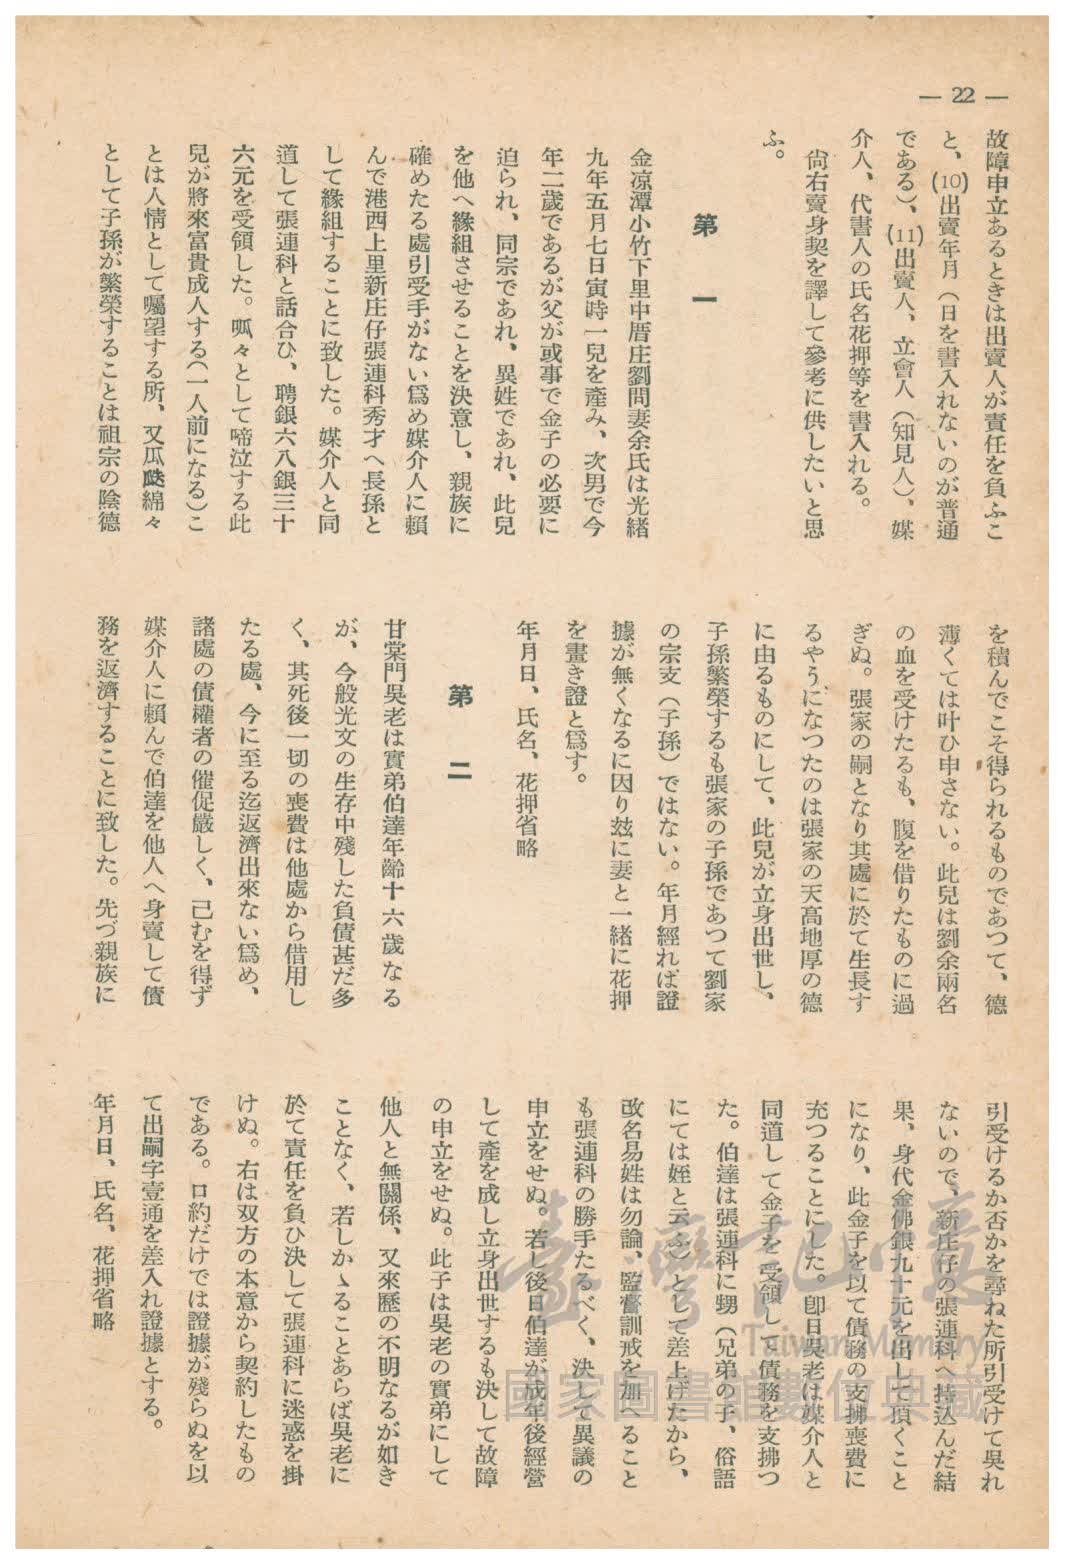 — 22 —
故障申立あるときは出賣人が責任を負ふこ
と、(10)出賣年月（日を書入れないのが普通
である）、(11)出賣人、立會人（知見人）、媒
介人、代書人の氏名花押等を書入れる。
尙右賣身契を譯して參考に供したいと思
ふ。
第一
金凉潭小竹下里中厝庄劉問妻余氏は光緖
九年五月七日寅時一兒を產み、次男で今
年二歲であるが父が或事で金子の必要に
迫られ、同宗であれ、異姓であれ、此兒
を他へ緣組させることを決意し、親族に
確めたる處引受手がない爲め媒介人に賴
んで港西上里新庄仔張連科秀才へ長孫と
して緣組することに致した。媒介人と同
道して張連科と話合ひ、聘銀六八銀三十
六元を受領した。呱々として啼泣する此
兒が將來富貴成人する（一人前になる）こ
とは人情として囑望する所、又瓜瓞綿々
として子孫が繁榮することは祖宗の陰德
を積んでこそ得られるものであつて、德
薄くては叶ひ申さない。此兒は劉余兩名
の血を受けたるも、腹を借りたものに過
ぎぬ。張家の嗣となり其處に於て生長す
るやうになつたのは張家の天高地厚の德
に由るものにして、此兒が立身出世し、
子孫繁榮するも張家の子孫であつて劉家
の宗支（子孫）ではない。年月經れば證
據が無くなるに因り玆に妻と一緖に花押
を畫き證と爲す。
年月日、氏名、花押省略
第二
甘棠門吳老は實弟伯達年齡十六歲なる
が、今般光文の生存中殘した負債甚だ多
く、其死後一切の喪費は他處から借用し
たる處、今に至る迄返濟出來ない爲め、
諸處の債權者の催促嚴しく、己むを得ず
媒介人に賴んで伯達を他人へ身賣して債
務を返濟することに致した。先づ親族に
引受けるか否かを尋ねた所引受けて吳れ
ないので、新庄仔の張連科へ持込んだ結
果、身代金佛銀九十元を出して頂くこと
になり、此金子を以て債務の支拂喪費に
充つることにした。卽日吳老は媒介人と
同道して金子を受領して債務を支拂つ
た。伯達は張連科に甥（兄弟の子、俗語
にては姪と云ふ）として差上げたから、
改名易姓は勿論、監督訓戒を加へること
も張連科の勝手たるべく、決して異議の
申立をせぬ。若し後日伯達が成年後經營
して產を成し立身出世するも決して故障
の申立をせぬ。此子は吳老の實弟にして
他人と無關係、又來歷の不明なるが如き
ことなく、若しかゝることあらば吳老に
於て責任を負ひ決して張連科に迷惑を掛
けぬ。右は双方の本意から契約したもの
である。口約だけでは證據が殘らぬを以
て出嗣字壹通を差入れ證據とする。
年月日、氏名、花押省略
臺灣記憶
Taiwan Memory
國家圖書館數位典藏